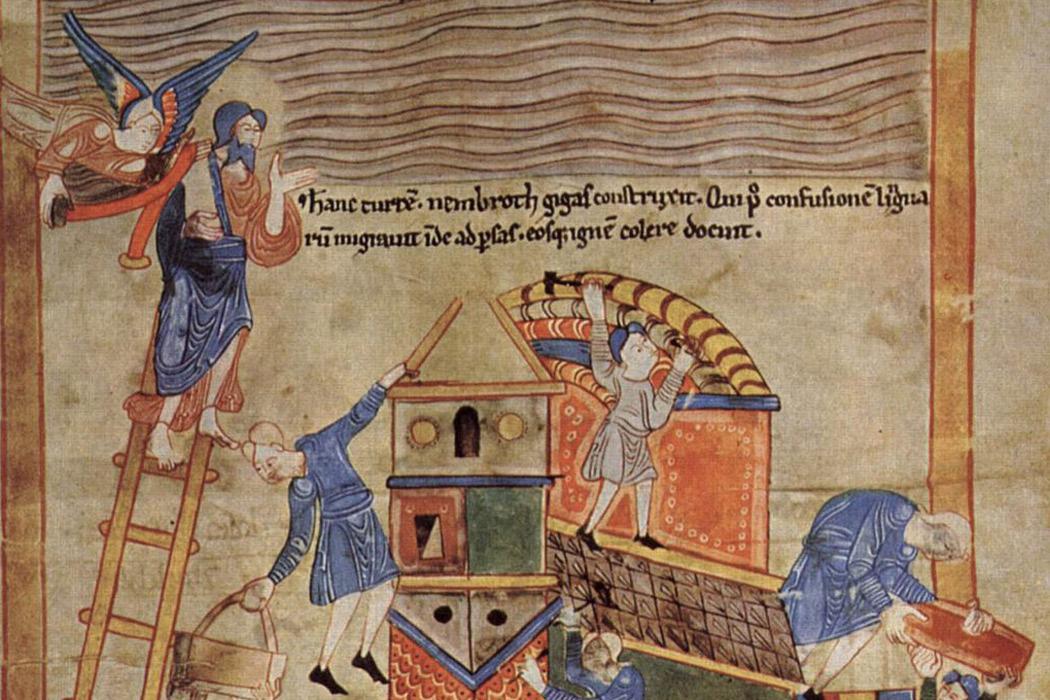 hanc turrē. nembroth gigas construxit. Qui p̄ confusionē ligua
rū migrauit īde ad ꝑsas. eosq; ignē colere docuit.